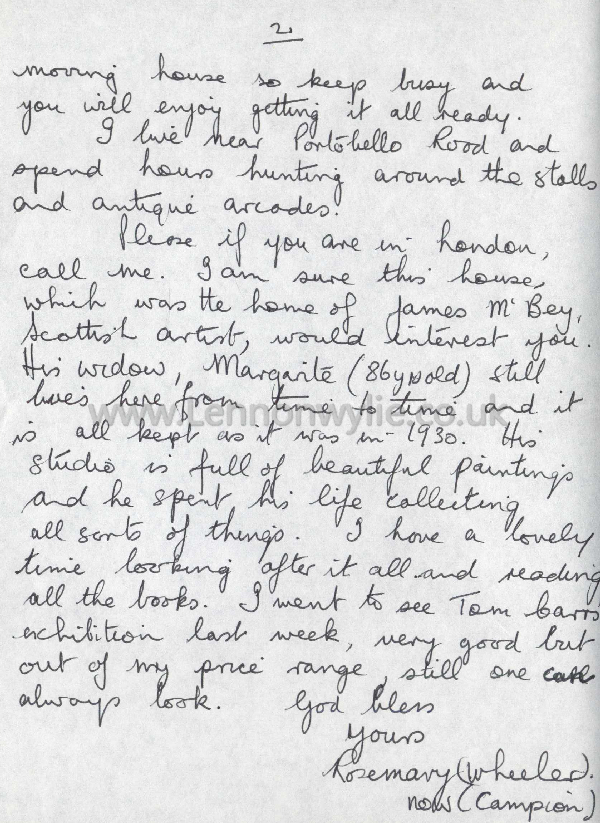 2.
moving house so keep busy and
you will enjoy getting it all ready.
I live near Portobello Road and
spend hours hunting around the stalls
and antique arcades.
Please if you are in London,
call me. I am sure this house,
which was the home of James McBey,
Scottish artist, would interest you.
His widow, Margarite (86yrs old) still
lives here from time to time and it
www.Lennonwylie.co.uk
is all kept as it was in 1930. His
studio is full of beautiful paintings
and he spent his life collecting
all sorts of things. I have a lovely
time looking after it all and reading
all the books. I went to see Tom Carrs
exhibition last week, very good but
out of my price range, still one can
always look. God bless
Yours
Rosemary (Wheeler).
now (Campion)